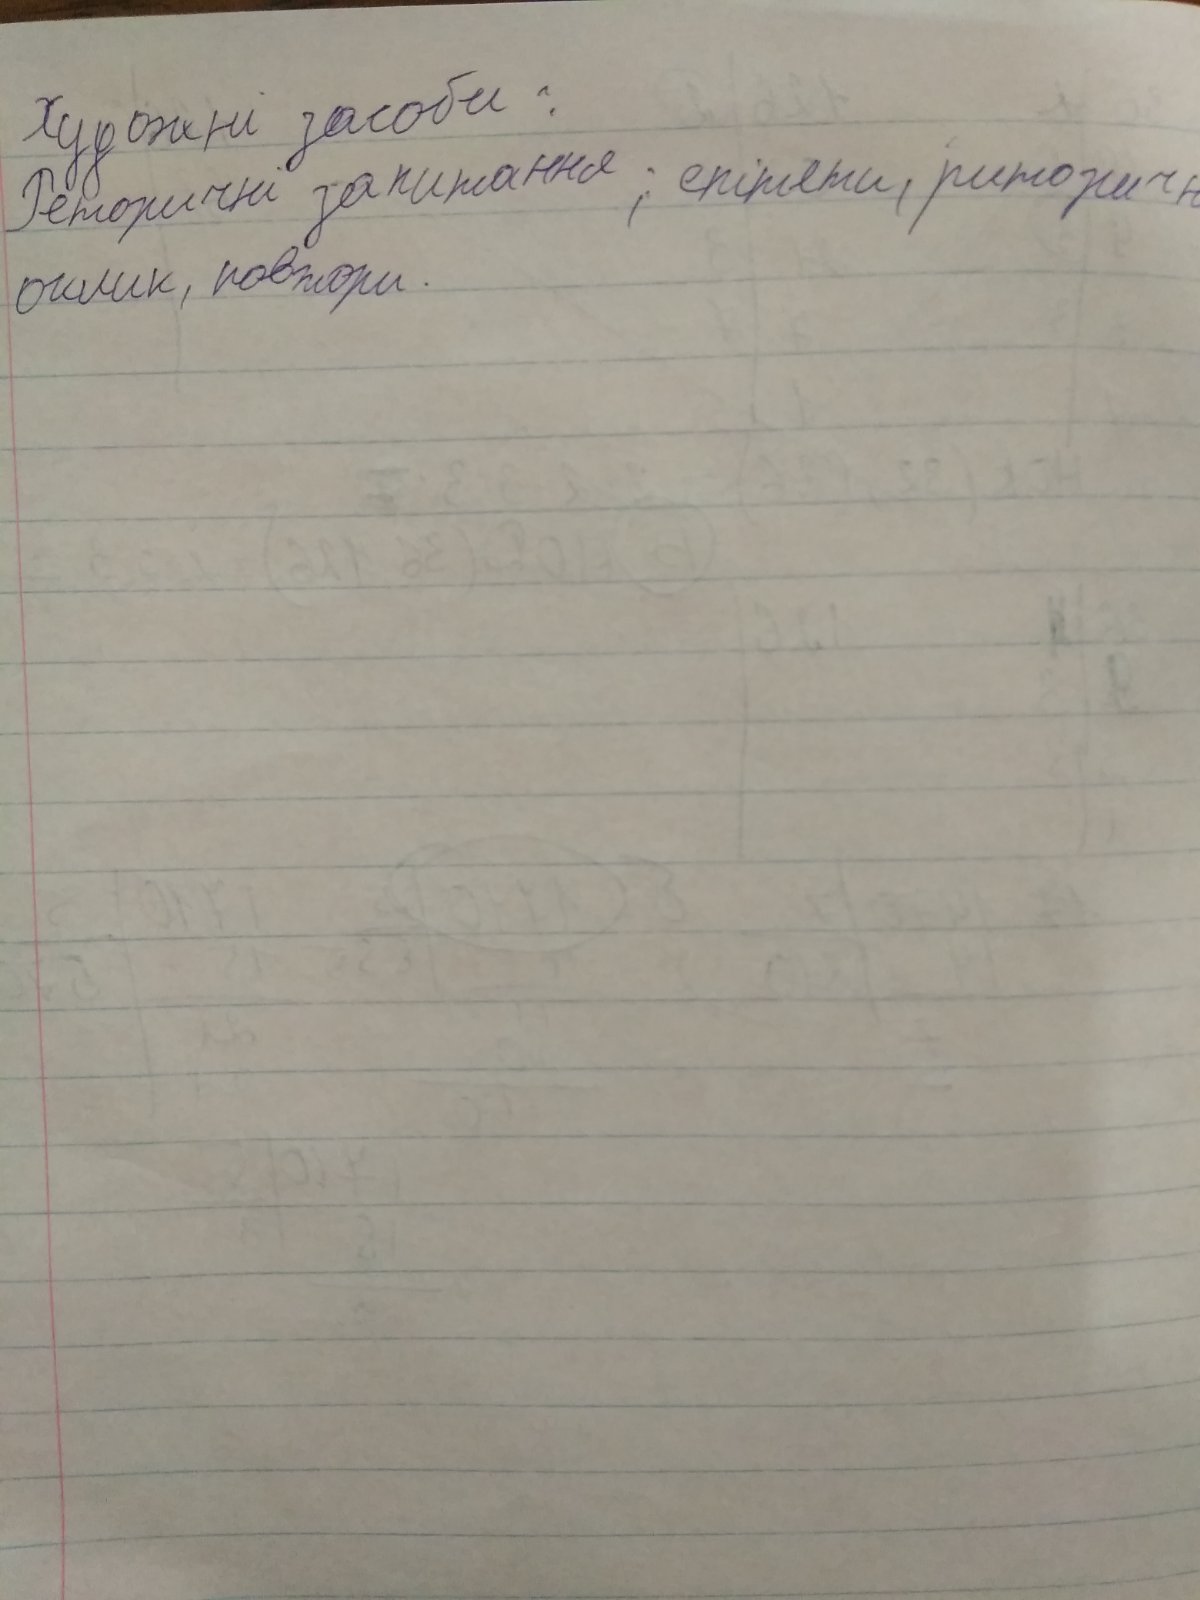 Художні засоби:
Реторичні запитання; епітети, риторичн
оклик, повтори.